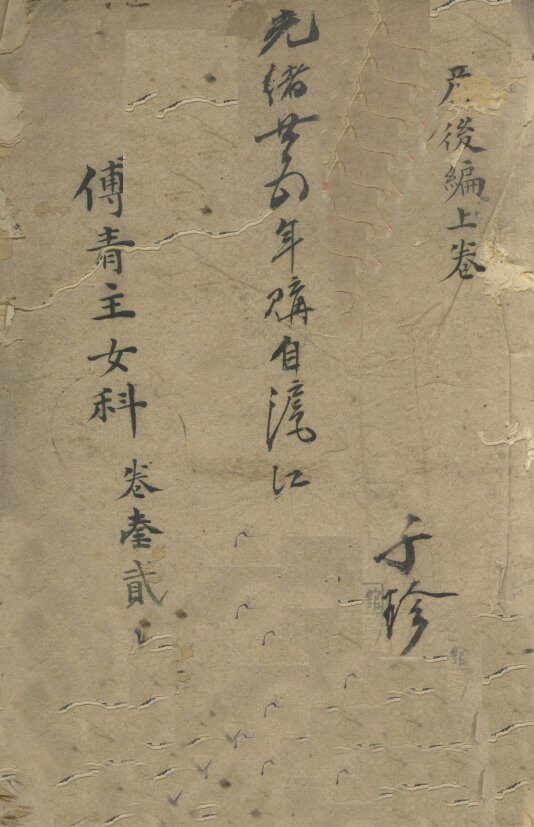 産後編上卷
于珍
光緒廿四年購自滬江
傅青主女科 卷壹貳